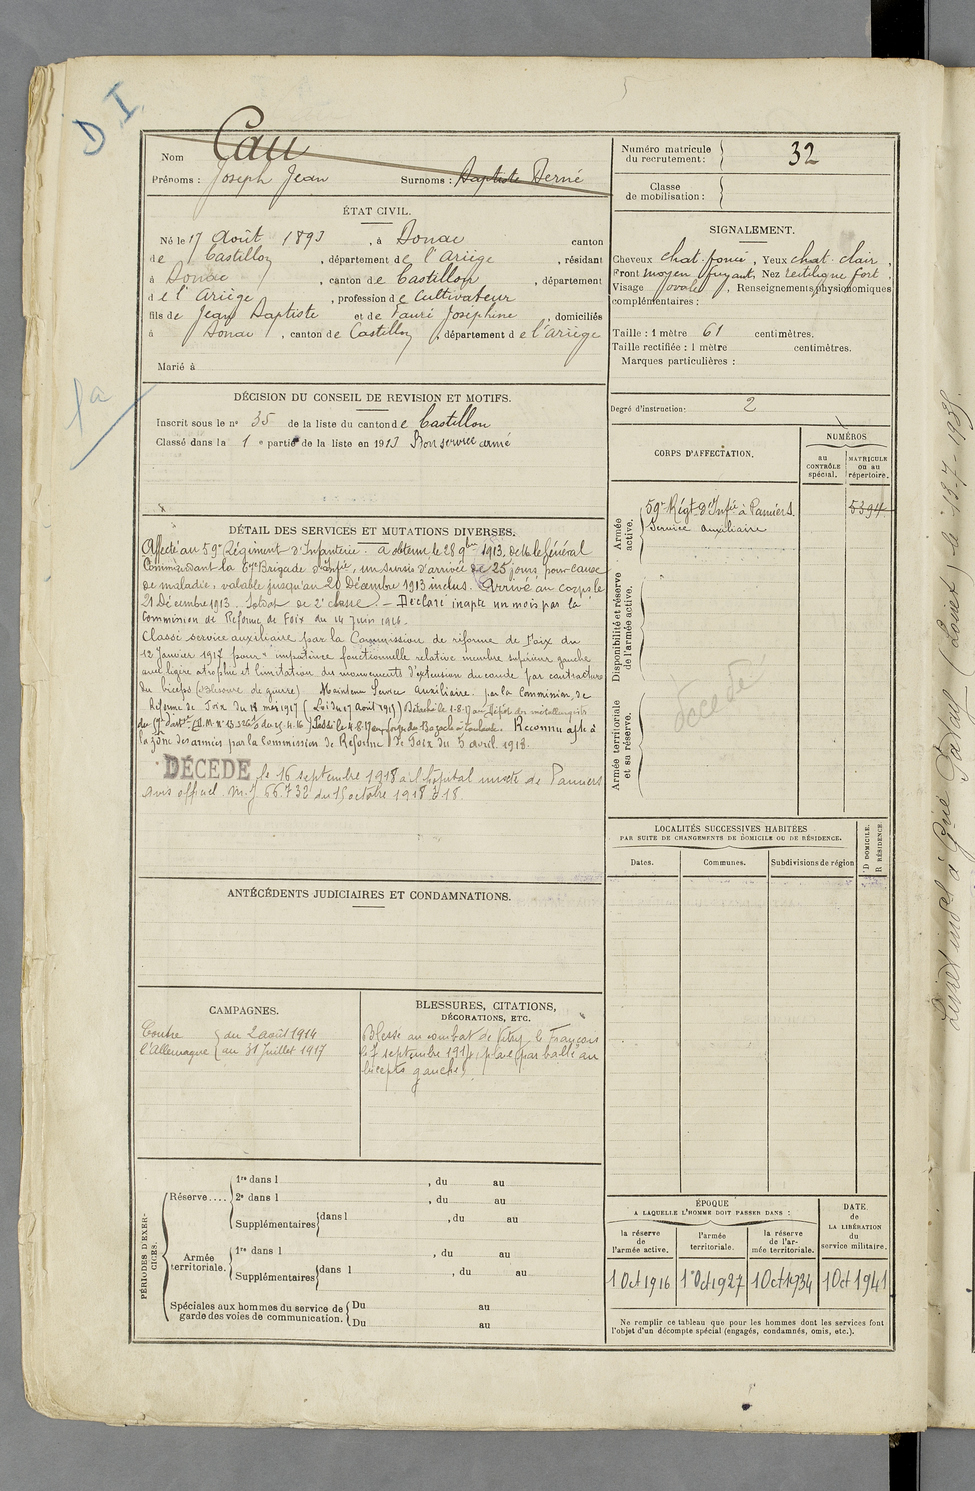 D I
5
Nom Cau
Prénoms : Joseph Jean Surnoms : Baptiste Derné
Numéro matricule du recrutement : 32
Classe de mobilisation :
ÉTAT CIVIL.
Né le 17 Août 1893, à Donac canton
de Castillon, département de l'Ariège, résidant
à Donac, canton de Castillon, département
de l'Ariège, profession de Cultivateur
fils de Jean Baptiste et de Fauré Joséphine, domiciliés
à Donac, canton de Castillon, département de l'Ariège
Marié à
SIGNALEMENT.
Cheveux chat. foncé, Yeux chat. clair,
Front moyen fuyant, Nez rectiligne fort,
Visage ovale, Renseignements physionomiques
complémentaires :
Taille : 1 mètre 61 centimètres.
Taille rectifiée : 1 mètre centimètres.
Marques particulières :
Degré d'instruction : 2
1a
DÉCISION DU CONSEIL DE REVISION ET MOTIFS.
Inscrit sous le n° 35 de la liste du canton de Castillon
Classé dans la 1e partie de la liste en 1913 Bon service armé
CORPS D'AFFECTATION.
NUMÉROS
au CONTRÔLE spécial.
MATRICULE ou au répertoire.
Armée active.
59e Régt d'Infie à Pamiers. 5394
Service auxiliaire
Disponibilité et réserve de l'armée active.
Armée territoriale et sa réserve.
décédé
DÉTAIL DES SERVICES ET MUTATIONS DIVERSES.
Affecté au 59e Régiment d'Infanterie. a obtenu le 28 9bre 1913, de M. le Général
Commandant la Brigade d'Infie, un sursis d'arrivée de 25 jours, pour cause
de maladie, valable jusqu'au 20 Décembre 1913 inclus. Arrivé au corps le
21 Décembre 1913. Soldat de 2e classe. - Déclaré inapte un mois par la
Commission de Réforme de Foix du 14 Juin 1916.
Classé service auxiliaire par la Commission de réforme de Foix du
12 Janvier 1917 pour "impotence fonctionnelle relative membre supérieur gauche
avec légère atrophie et limitation des mouvements d'extension du coude par contracture
du biceps (Blessure de guerre). Maintenu Service Auxiliaire. par la Commission de
Réforme de Foix du 18 mai 1917 (Loi du 17 Août 1915) Détaché le 1-8-17 au dépôt des métallurgistes
Passé le 4-8-17 aux à Toulouse. Reconnu apte à
la zône des armées par la Commission de Réforme de Foix du 5 avril 1918.
DÉCÉDÉ le 16 septembre 1918 à l'hôpital mixte de Pamiers
avis officiel. M. J 66.732 du 15 octobre 1918 à 18.
LOCALITÉS SUCCESSIVES HABITÉES
PAR SUITE DE CHANGEMENTS DE DOMICILE OU DE RÉSIDENCE.
Dates. Communes. Subdivisions de région D DOMICILE. R RÉSIDENCE
ANTÉCÉDENTS JUDICIAIRES ET CONDAMNATIONS.
CAMPAGNES.
Contre du 2 août 1914
l'Allemagne au 31 Juillet 1917
BLESSURES, CITATIONS,
DÉCORATIONS, ETC.
Blessé au combat de Vitry le François
le 7 septembre 1914, plaie par balle au
biceps gauche.
PÉRIODES D'EXERCICES.
Réserve....
1re dans l , du au
2e dans l , du au
Supplémentaires dans l , du au
Armée territoriale.
1re dans l , du au
Supplémentaires dans l , du au
Spéciales aux hommes du service de garde des voies de communication.
Du au
Du au
ÉPOQUE
A LAQUELLE L'HOMME DOIT PASSER DANS :
la réserve de l'armée active.
l'armée territoriale.
la réserve de l'armée territoriale.
DATE de LA LIBÉRATION du service militaire.
1 Oct 1916 1er Oct 1927 1 Oct 1934 1 Oct 1941
Ne remplir ce tableau que pour les hommes dont les services font
l'objet d'un décompte spécial (engagés, condamnés, omis, etc.).
(Loiret) le 13-7-1938.